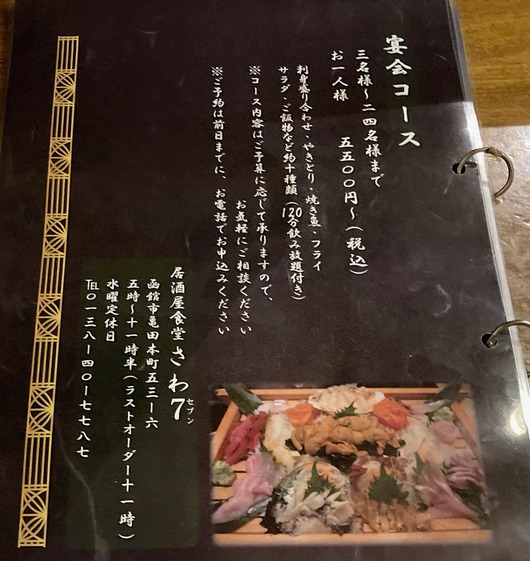 宴会コース
三名様～二四名様まで
お一人様　五五〇〇円～(税込)
刺身盛り合わせ・やきとり・焼き魚・フライ
サラダ・ご飯物など約十種類(120分飲み放題付き)
※コース内容はご予算に応じて承りますので、
お気軽にご相談ください
※ご予約は前日までに、お電話でお申込みください
居酒屋食堂 さわ7
セブン
函館市亀田本町五三ー六
五時～十一時半(ラストオーダー十一時)
水曜定休日
℡〇一三八ー四〇ー七七八七